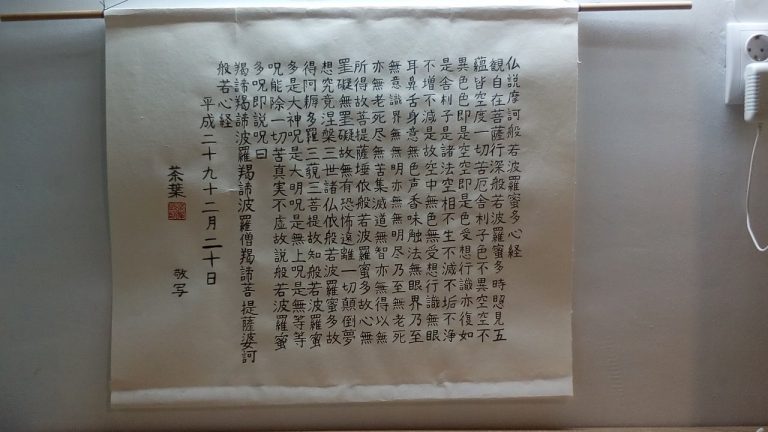 仏説摩訶般若波羅蜜多心経
観自在菩薩行深般若波羅蜜多時照見五
蘊皆空度一切苦厄舎利子色不異空空不
異色色即是空空即是色受想行識亦復如
是舎利子是諸法空相不生不滅不垢不浄
不増不減是故空中無色無受想行識無眼
耳鼻舌身意無色声香味触法無眼界乃至
無意識界無無明亦無無明尽乃至無老死
亦無老死尽無苦集滅道無智亦無得以無
所得故菩提薩埵依般若波羅蜜多故心無
罣礙無罣礙故無有恐怖遠離一切顛倒夢
想究竟涅槃三世諸仏依般若波羅蜜多故
得阿耨多羅三藐三菩提故知般若波羅蜜
多是大神呪是大明呪是無上呪是無等等
呪能除一切苦真実不虚故説般若波羅蜜
多呪即説呪曰
羯諦羯諦波羅羯諦波羅僧羯諦菩提薩婆訶
般若心経
平成二十九十二月二十日
茶葉 敬写